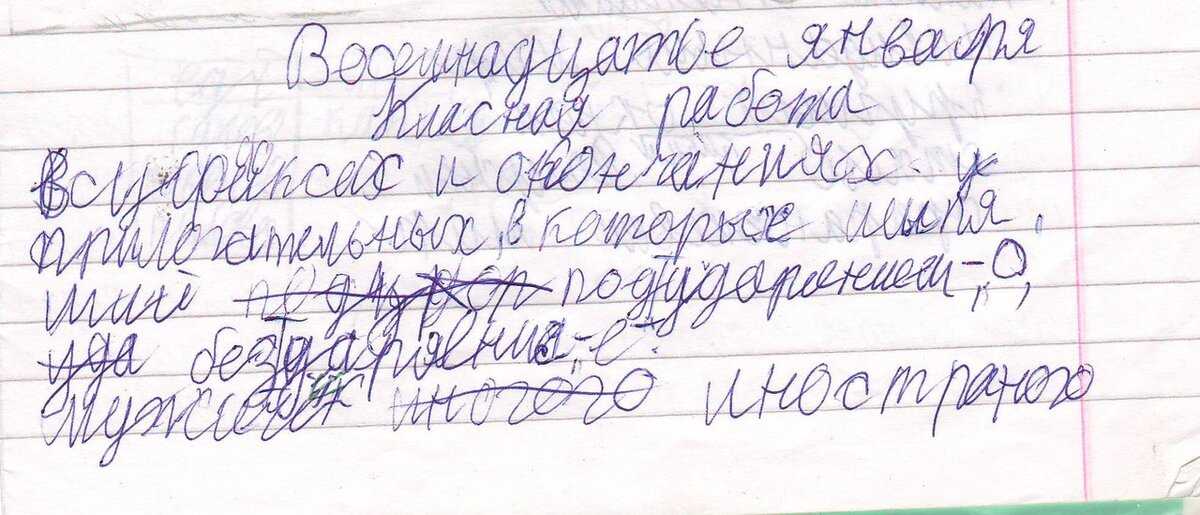 Восемнадцатое января
Класная работа
В суффиксах и окончаниях у
прилогательных, в которых шипя
щий под ударением -, О,
уда без ударения -, е.
иного иностраного